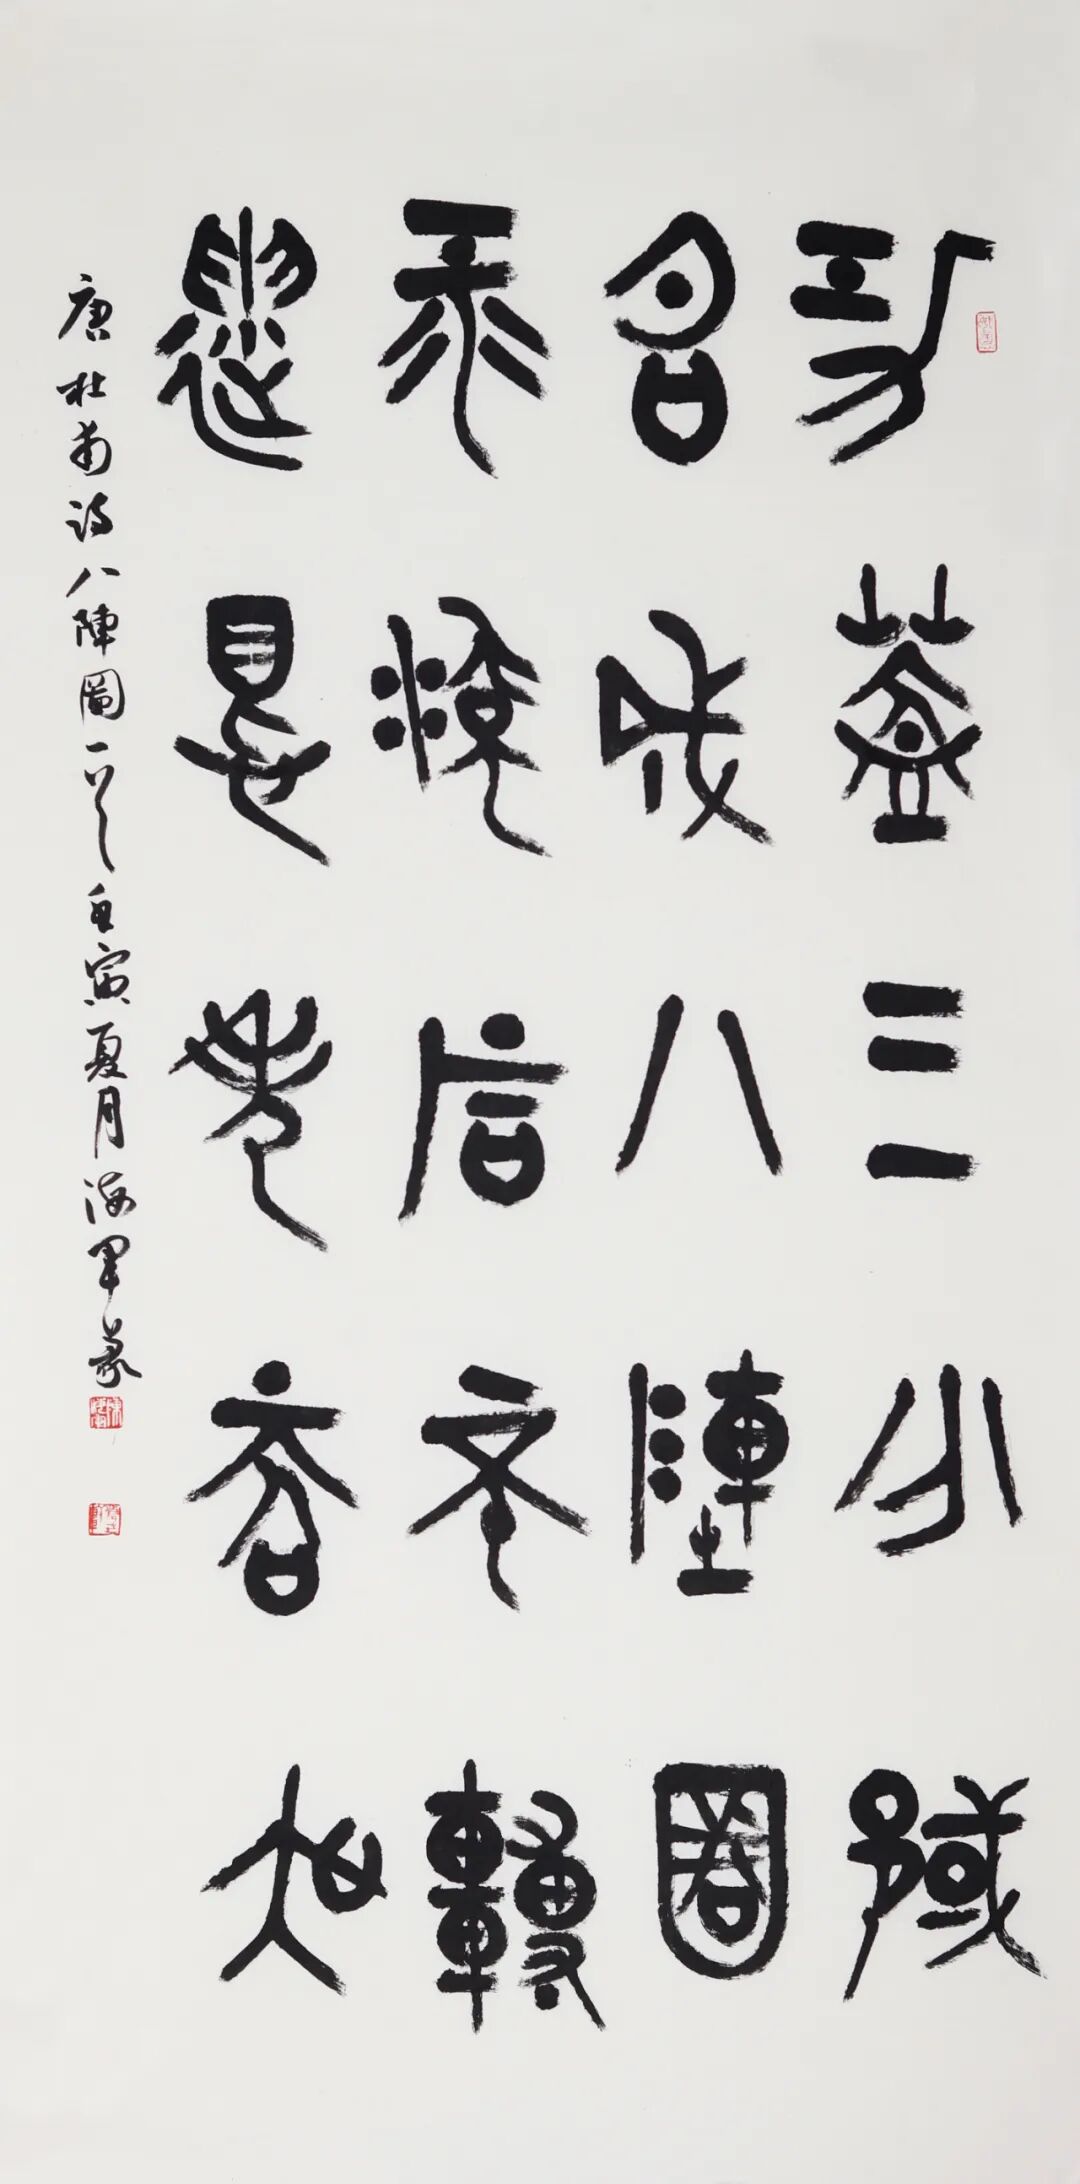 功蓋三分國
名成八陣圖
江流石不轉
遺恨失吞吳
唐杜甫詩八陣圖一首壬寅夏月海軍篆